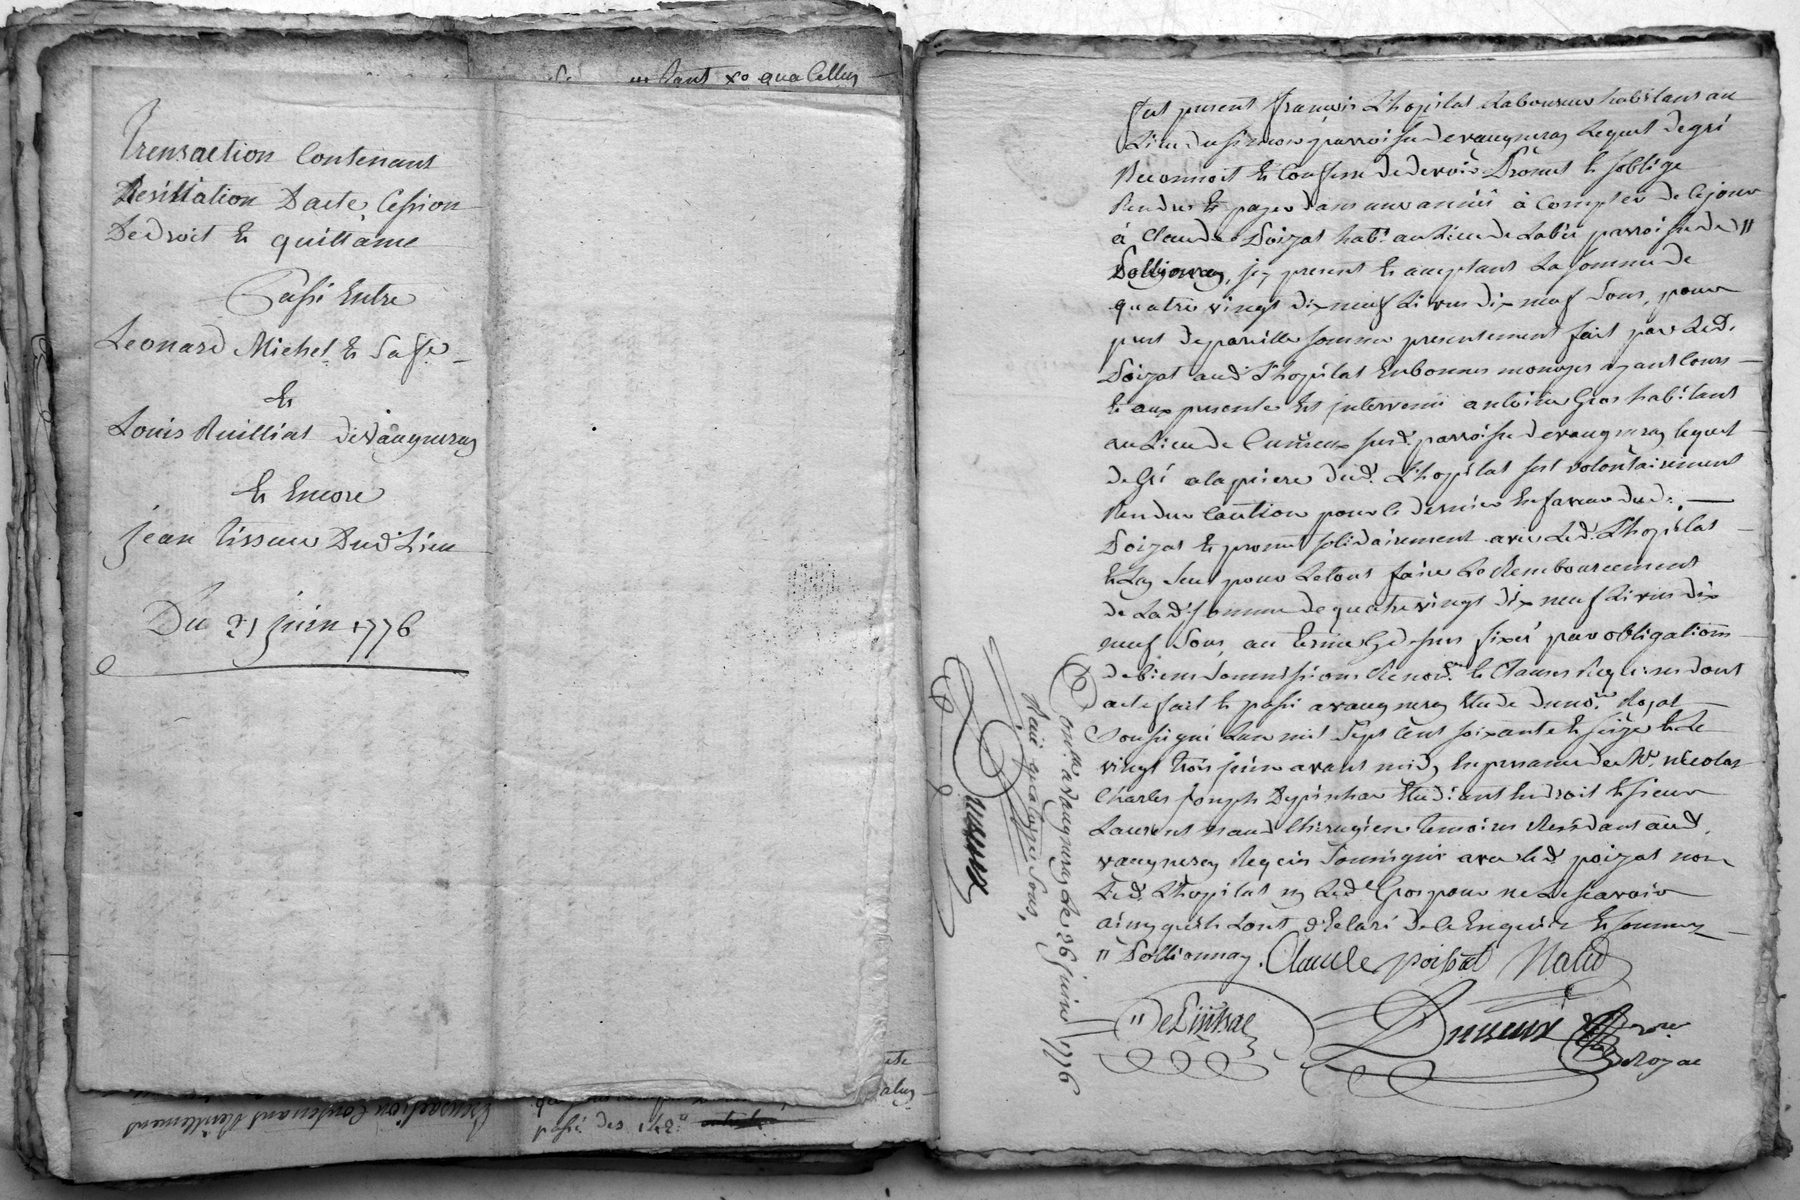 Transaction Contenant
Resiliation D'acte, Cession
De droit Et quittance
Passé Entre
Leonard Michel Et Sa fe
Et
Louis Ruilliat de vaugneray
Et Encore
jean tisseur Dud. Lieu
Du 21 juin 1776
passé des
Transaction Contenant
fut present françois L'hopital Laboureur habitant au
Lieu du parroisse de vaugneray Lequel de gré
Reconnoit Et Confesse de devoir Promet Et soblige
Rendre Et payer dans une année à Compter de Ce jour
à Claude Poizat habt. au Lieu de parroisse de "
Pollionnay, jcy present Et acceptant La somme de
quatre vingt dix neuf Livres dix neuf Sous, pour
pret de pareille somme presentement fait par Led.
Poizat aud. L'hopital En bonnes monoyes ayant Cours
Et aux presentes Est jntervenu antoine Gros habitant
au Lieu de susd. parroisse de vaugneray lequel
de Gré a la priere dud. L'hopital s'est volontairement
Rendu Caution pour Ce dernier En faveur dud.
Poizat Et promet solidairement avec Led. L'hopital
Et Luy Seul pour Le tout faire Le Remboursement
de Lad. somme de quatre vingt dix neuf Livres dix
neuf Sous, au terme Cy dessus fixé par obligations
de biens Soumissions Renon.on Et Clauses Requises dont
acte fait Et passé a vaugneray Etude du no.re Royal
Soussigné L'an mil Sept Cent soixante Et seize Et Le
vingt trois juin avant midy En presence de Mr. nicolas
Charles joseph Etudiant En droit Et sieur
Laurent naud Chirurgien temoins Residant aud.
vaugneray Requis Soussignés avec led. poizat non
Led. L'hopital ny Led. Gros pour ne Le sçavoir
ainsy qu'ils L'ont déclaré de Ce Enquis Et sommés
" Pollionnay. Claude poisat Naud
no.re
Royal
Con.lé a vaugneray Le 26 juin 1776
Reçu quatorze Sous,